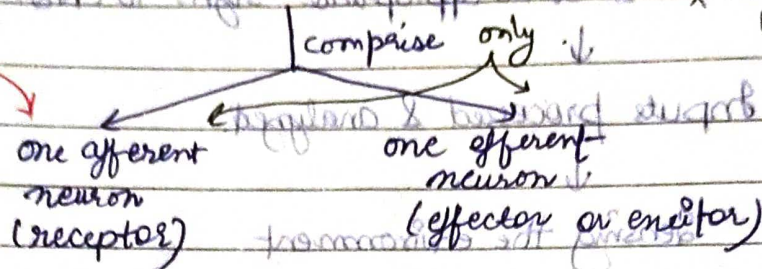 comprise only
one afferent
neuron
(receptor)
one efferent
neuron
(effector or excitor)